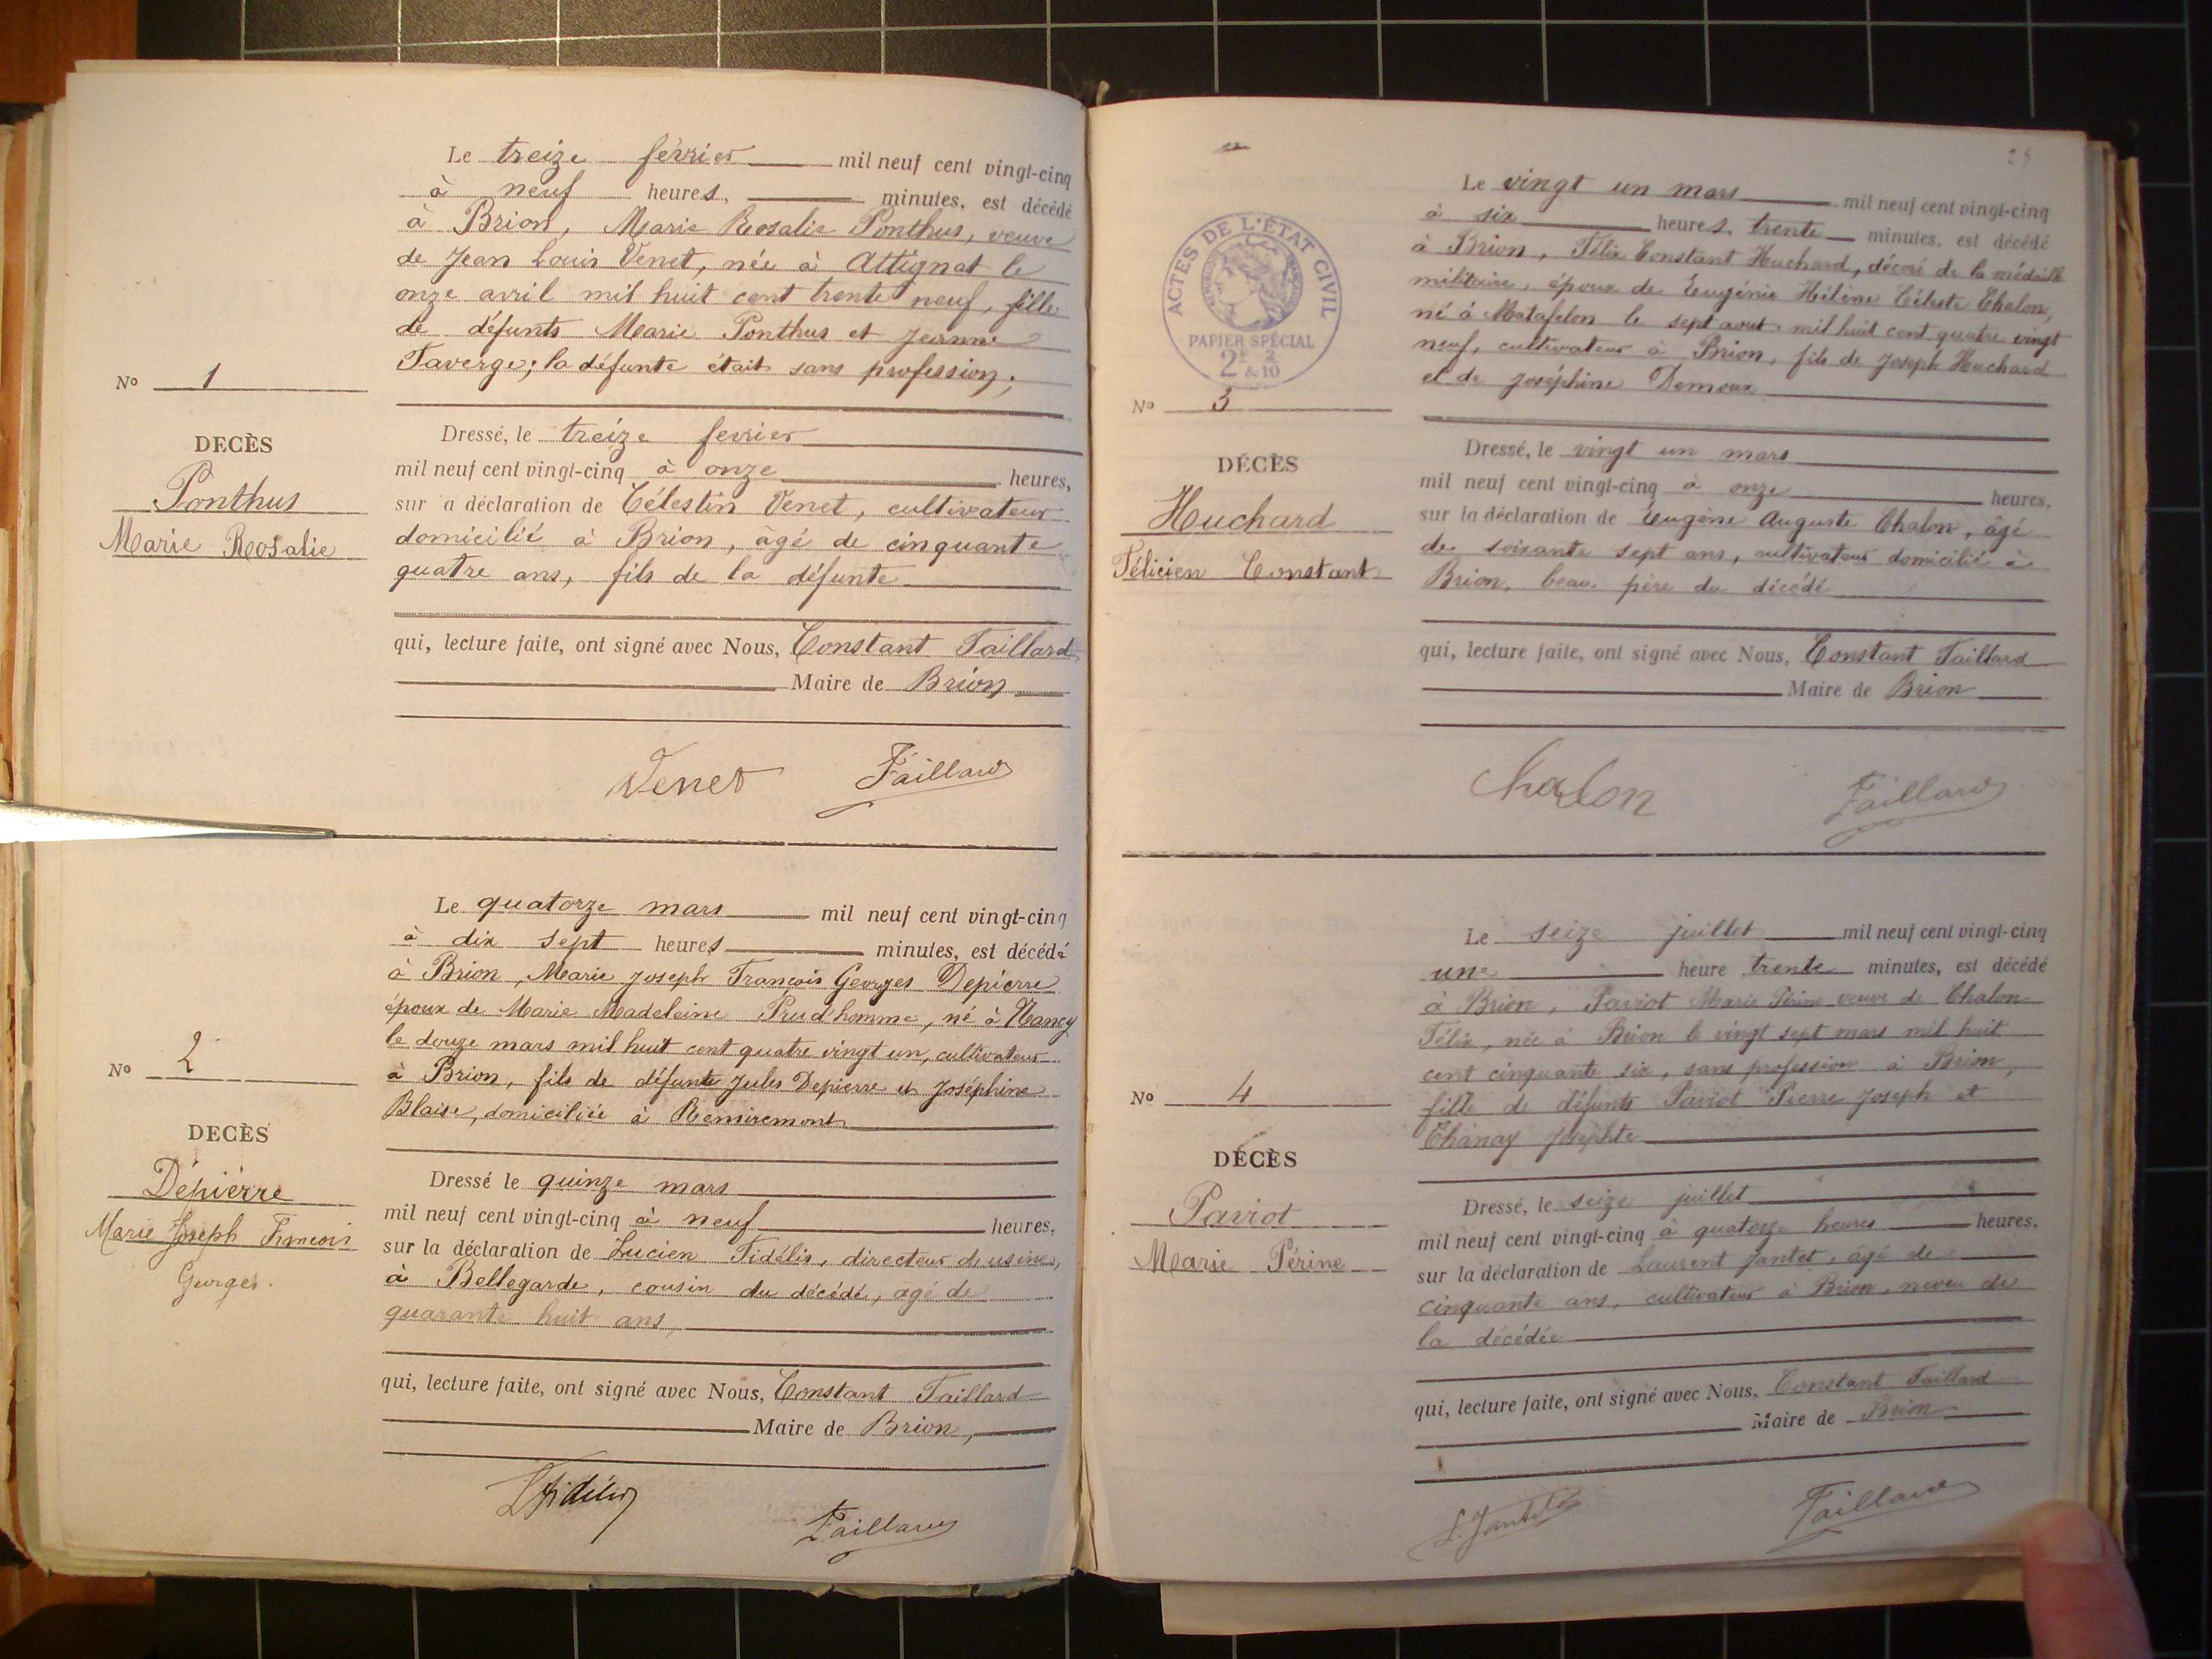 Le treize février mil neuf cent vingt-cinq
à neuf heures, minutes, est décédé
à Brion, Marie Rosalie Ponthus, veuve
de Jean Louis Venet, née à Attignat le
onze avril mil huit cent trente neuf, fille
de défunts Marie Ponthus et Jeanne
Taverge; la défunte était sans profession;
No 1
DECÈS
Ponthus
Marie Rosalie
Dressé, le treize fevrier
mil neuf cent vingt-cinq à onze heures,
sur a déclaration de Célestin Venet, cultivateur
domicilié à Brion, âgé de cinquante
quatre ans, fils de la défunte
qui, lecture faite, ont signé avec Nous, Constant Taillard
Maire de Brion
Venet Taillard
Le quatorze mars mil neuf cent vingt-cinq
à dix sept heures minutes, est décédé
à Brion, Marie Joseph François Georges Depierre
époux de Marie Madeleine Prud'homme, né à Nancy
le douze mars mil huit cent quatre vingt un, cultivateur
à Brion, fils de défunts Jules Depierre et Joséphine
Blaise, domiciliée à Remiremont
No 2
DECÈS
Dépierre
Marie Joseph François
Georges.
Dressé le quinze mars
mil neuf cent vingt-cinq à neuf heures,
sur la déclaration de Lucien Fidélis, directeur de usine,
à Bellegarde, cousin du décédé, agé de
quarante huit ans,
qui, lecture faite, ont signé avec Nous, Constant Taillard
Maire de Brion,
L Fidélis
Taillard
25
Le vingt un mars mil neuf cent vingt-cinq
à six heures trente minutes, est décédé
à Brion, Félix Constant Huchard, décoré de la médaille
militaire, époux de Eugénie Hélène Céleste Chalon,
né à Matafelon le sept aout mil huit cent quatre vingt
neuf, cultivateur à Brion, fils de Joseph Huchard
et de Joséphine Demoux
ACTES DE L'ÉTAT CIVIL
PAPIER SPÉCIAL
2F 2
& 10
No 3
DÉCÈS
Huchard
Félicien Constant
Dressé, le vingt un mars
mil neuf cent vingt-cinq à onze heures,
sur la déclaration de Eugène Auguste Chalon, âgé
de soixante sept ans, cultivateur domicilié à
Brion, beau père du décédé
qui, lecture faite, ont signé avec Nous, Constant Taillard
Maire de Brion
Chalon Taillard
Le seize juillet mil neuf cent vingt-cinq
une heure trente minutes, est décédé
à Brion, Paviot Marie Périne veuve de Chalon
Félix, née à Brion le vingt sept mars mil huit
cent cinquante six, sans profession à Brion,
fille de défunts Paviot Pierre Joseph et
Chanay Josephte
No 4
DÉCÈS
Paviot
Marie Périne
Dressé, le seize juillet
mil neuf cent vingt-cinq à quatorze heures heures,
sur la déclaration de Laurent Jantet, âgé de
cinquante ans, cultivateur à Brion, neveu de
la décédée
qui, lecture faite, ont signé avec Nous, Constant Taillard
Maire de Brion
L. Jantet Taillard